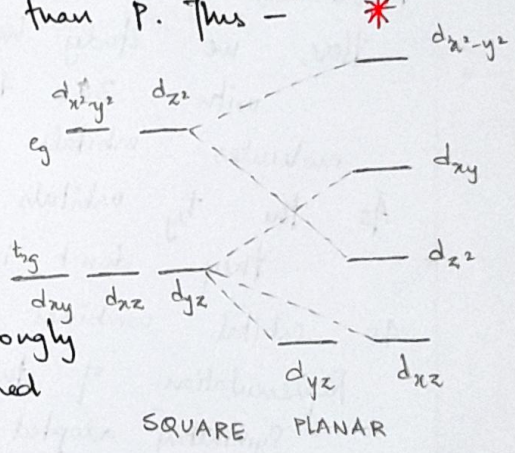 than P. This –
d_{x²-y²}
d_{x²-y²} d_{z²}
eg
d_{xy}
d_{z²}
t₂g
d_{xy} d_{xz} d_{yz}
ongly
d_{yz} d_{xz}
ed
SQUARE PLANAR